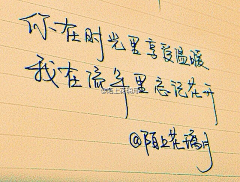 你在时光里享受温暖
我在流年里忘记花开
@陌上花满月